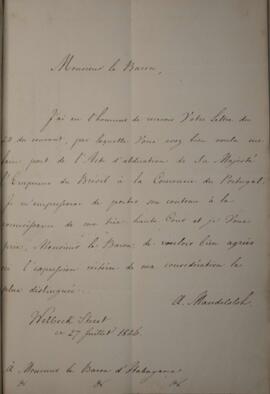 Monsieur le Baron,
J'ai eu l'honneur de recevoir Votre Lettre du
24 du courant, par laquelle Vous avez bien voulu me
faire part de l'Acte d'abdication de Sa Majesté
l'Empereur du Brésil à la Couronne du Portugal.
Je m'empresserai de porter son contenu à la
connaissance de ma très haute Cour et je Vous
prie, Monsieur le Baron de vouloir bien agréer
ici l'expression réitérée de ma considération la
plus distinguée.
A. Mandelsloh
Welbeck Street
ce 27 Juillet 1826
à Monsieur le Baron d'Itabayana
&c &c &c